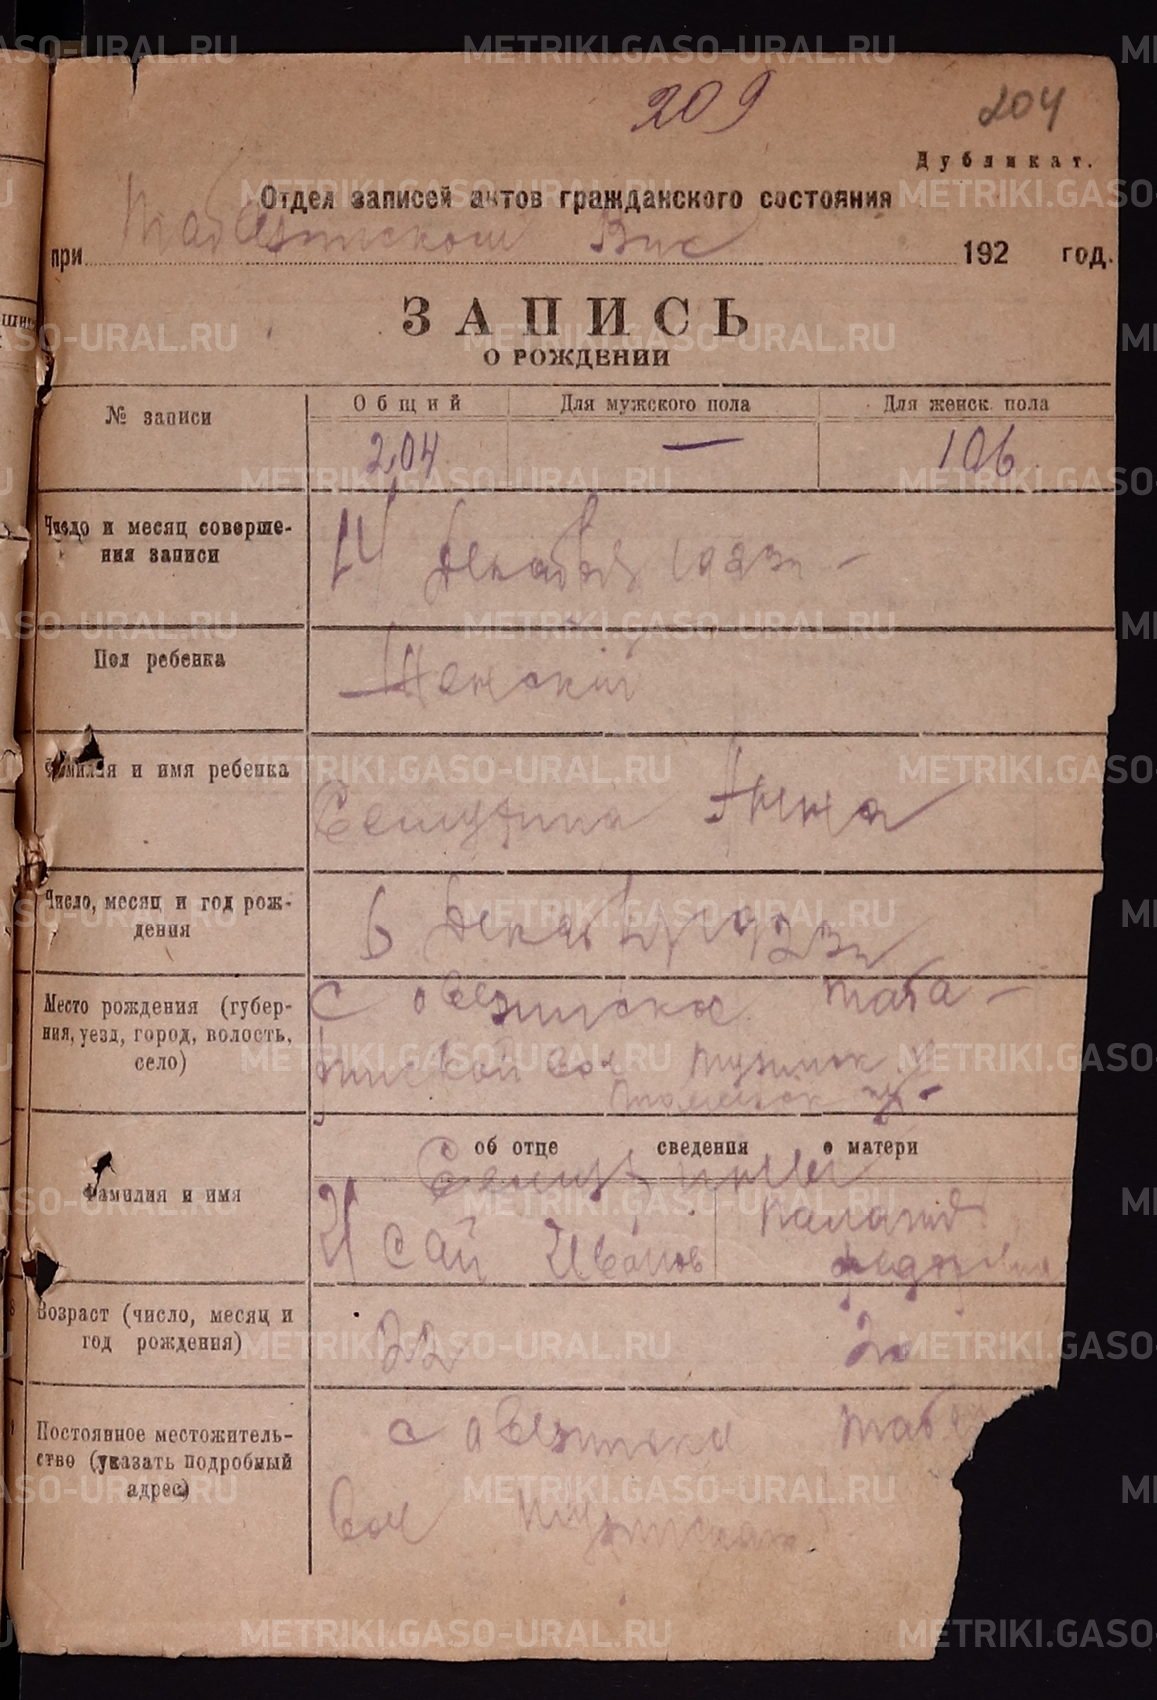 209
204
Дубликат.
Отдел записей актов гражданского состояния
при 192 год.
ЗАПИСЬ
О РОЖДЕНИИ
№ записи
Общий
Для мужского пола
Для женск. пола
204
—
106
Число и месяц соверше-
ния записи
14 Декабря 1923 г —
Пол ребенка
Женский
Фамилия и имя ребенка
Анна
Число, месяц и год рож-
дения
6 Декабря 1923 г
Место рождения (губер-
ния, уезд, город, волость,
село)
с
вол
об отце сведения о матери
Фамилия и имя
Исай Иванов
Федоровна
Возраст (число, месяц и
год рождения)
22
20
Постоянное местожитель-
ство (указать подробный
адрес)
с
вол
METRIKI.GASO-URAL.RU